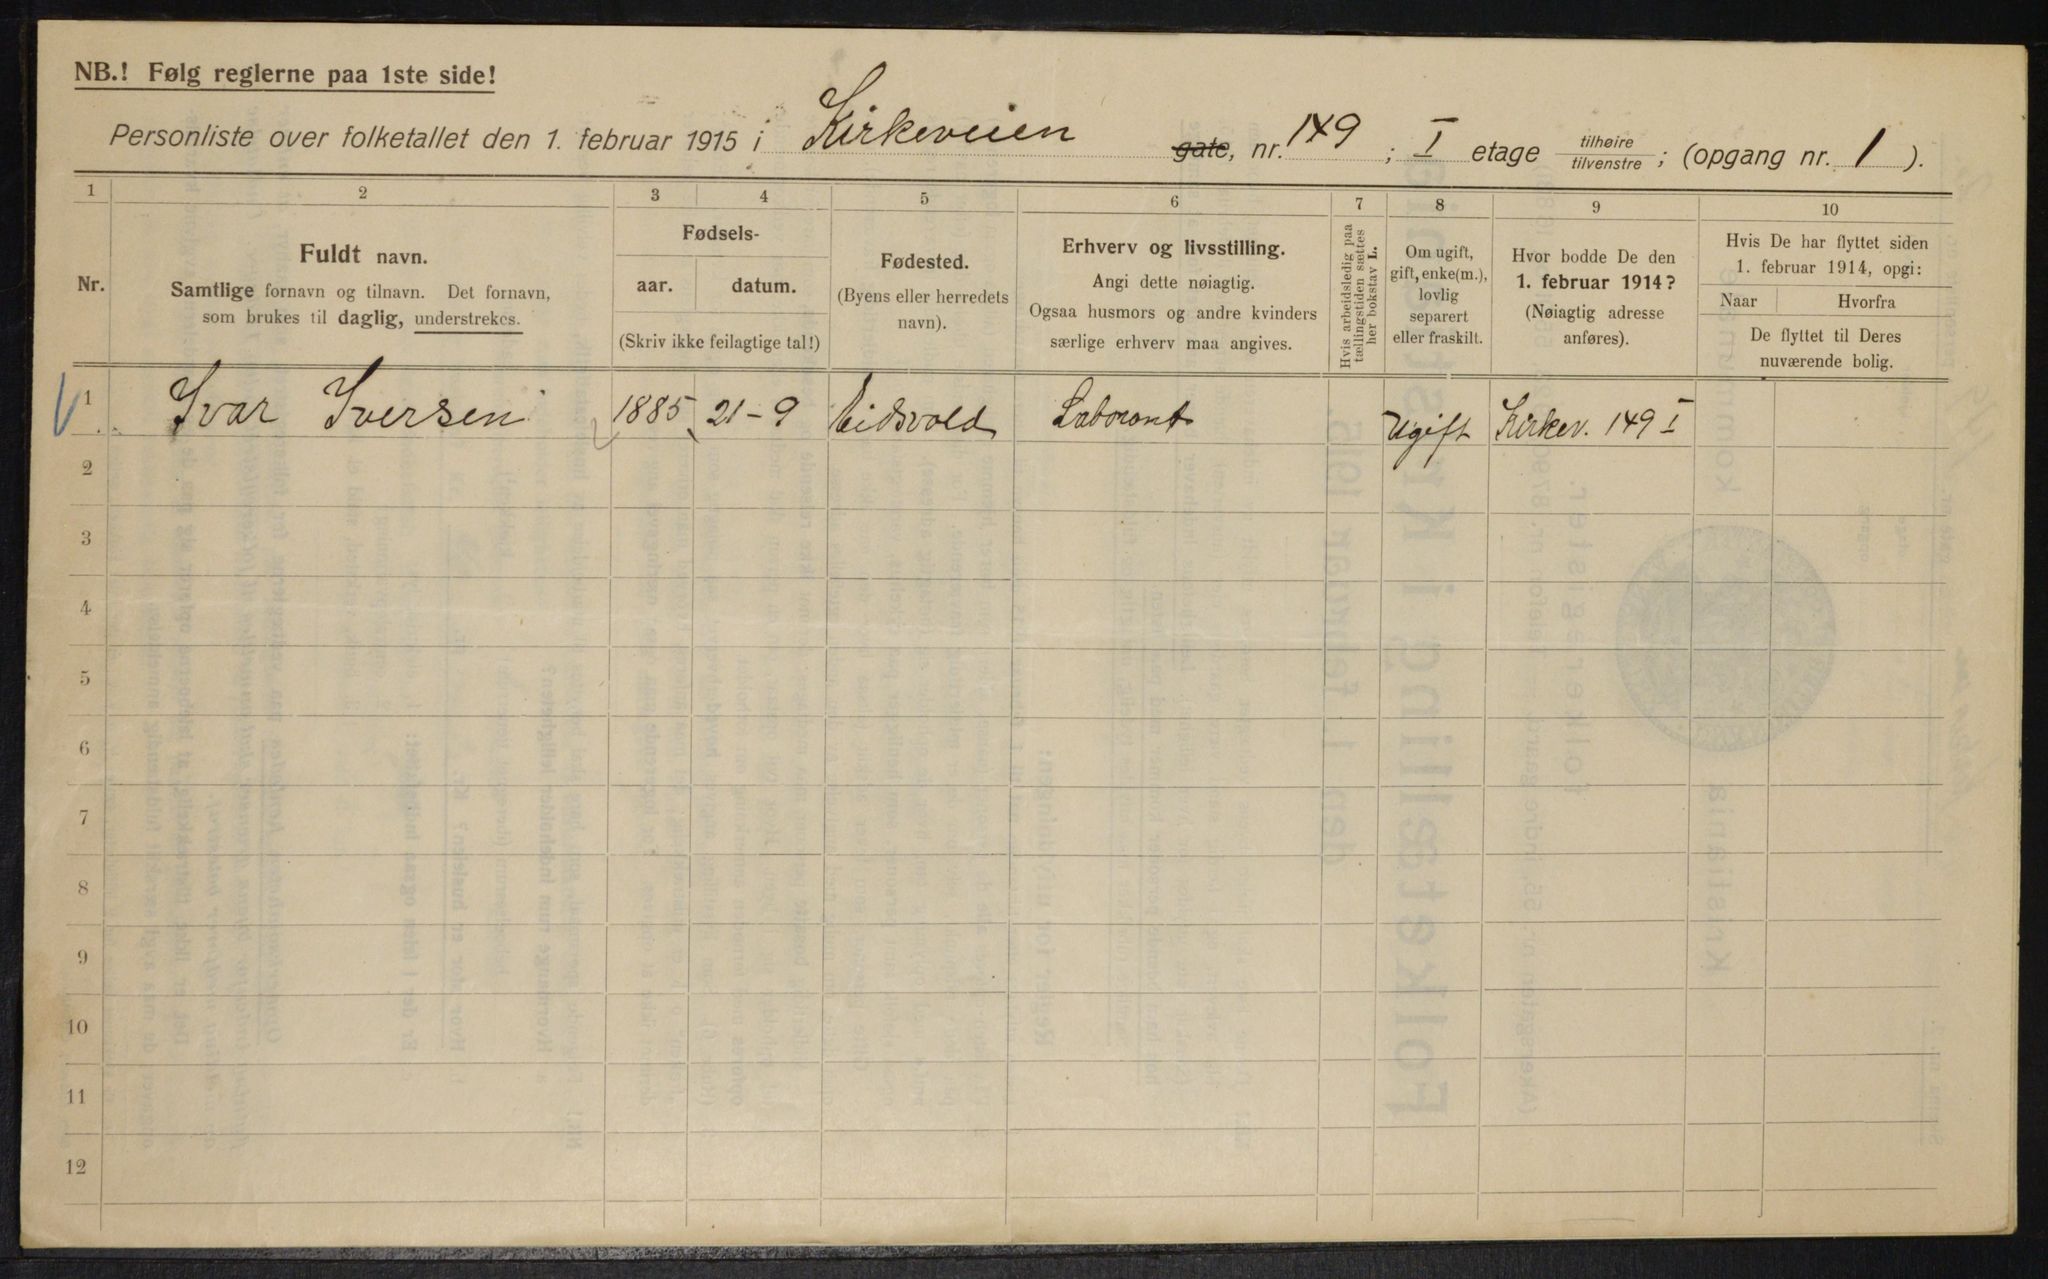 NB.! Følg reglerne paa 1ste side!
Personliste over folketallet den 1. februar 1915 i Kirkeveien gate, nr. 149 ; I etage tilhøire tilvenstre ; (opgang nr. 1 ).
1 2 3 4 5 6 7 8 9 10
Nr.
Fuldt navn.
Samtlige fornavn og tilnavn. Det fornavn,
som brukes til daglig, understrekes.
Fødsels-
aar. datum.
(Skriv ikke feilagtige tal!)
Fødested.
(Byens eller herredets
navn).
Erhverv og livsstilling.
Angi dette nøiagtig.
Ogsaa husmors og andre kvinders
særlige erhverv maa angives.
Hvis arbeidsledig paa
tællingstiden sættes
her bokstav L.
Om ugift,
gift, enke(m.),
lovlig
separert
eller fraskilt.
Hvor bodde De den
1. februar 1914?
(Nøiagtig adresse
anføres).
Hvis De har flyttet siden
1. februar 1914, opgi:
Naar Hvorfra
De flyttet til Deres
nuværende bolig.
1 Ivar Iversen 1885 21-9 Eidsvold Laborant Ugift Kirkev. 149 I
2
3
4
5
6
7
8
9
10
11
12